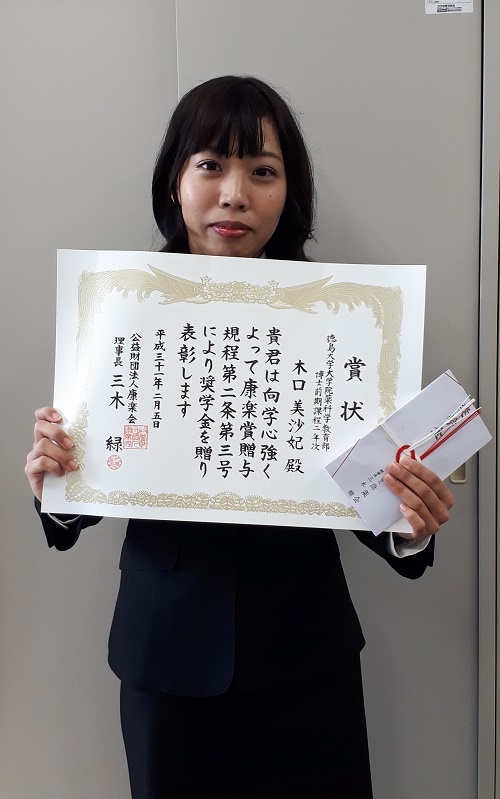 賞状
徳島大学大学院薬科学教育部
博士前期課程二年次
木口美沙妃殿
貴君は向学心強く
よって康楽賞贈与
規程第二条第三号
により奨学金を贈り
表彰します
平成三十一年二月五日
公益財団法人康楽会
理事長 三木 緑